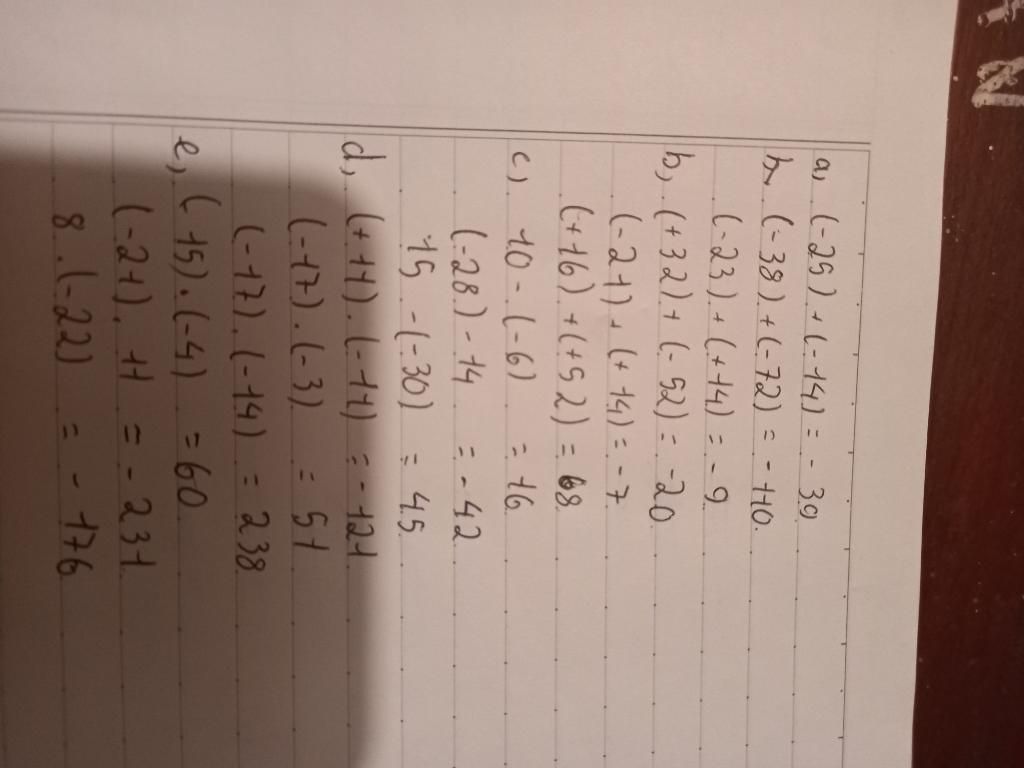 a, (-25) + (-14) = - 39
(-38) + (-72) = - 110
(-23) + (+14) = - 9
b, (+32) + (-52) = -20
(-21) + (+14) = - 7
(+16) + (+52) = 68
c, 10 - (-6) = 16
(-28) - 14 = - 42
15 - (-30) = 45
d, (+11) . (-11) = - 121
(-17) . (-3) = 51
(-17) . (-14) = 238
e, (-15) . (-4) = 60
(-21) . 11 = - 231
8 . (-22) = - 176